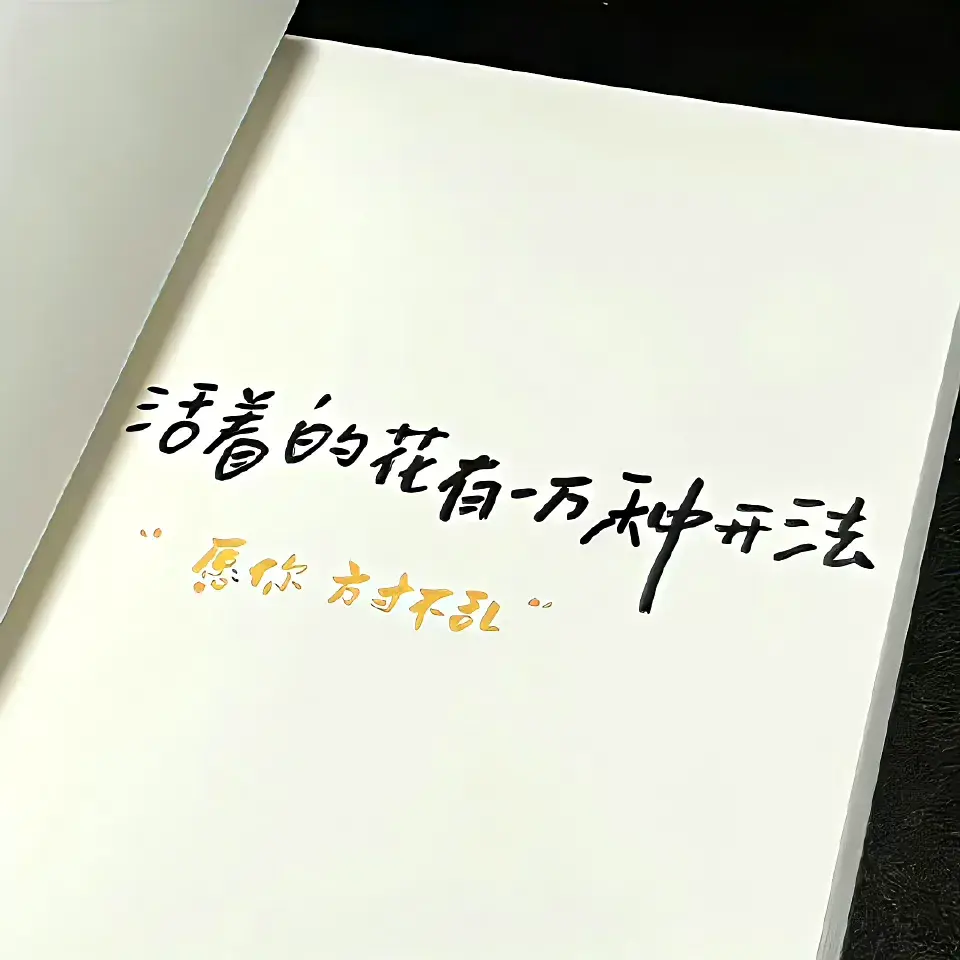 活着的花有一万种开法
“愿你方寸不乱”